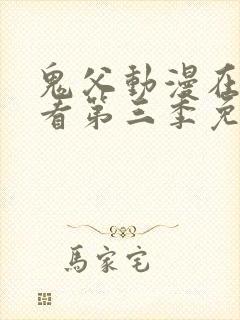 鬼父動漫在
看第三季免
馬家宅